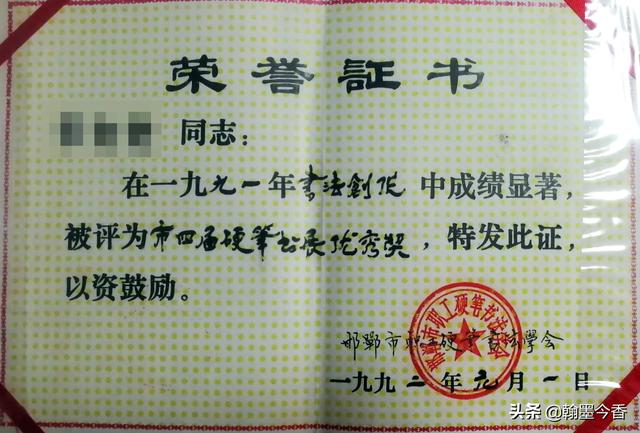 荣誉証书
同志：
在一九九一年书法創作中成绩显著，
被评为市四届硬笔书展优秀奖，特发此证，
以资鼓励。
邯郸市职工硬笔书法学会
邯郸市职工硬笔書法學会
一九九二年元月一日
头条 @翰墨今香